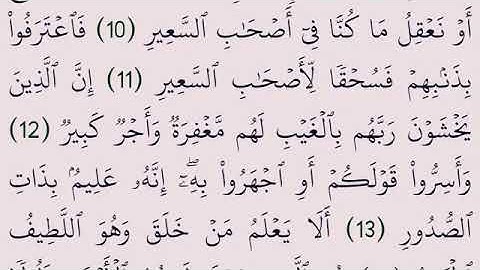 أَوۡ نَعۡقِلُ مَا كُنَّا فِيٓ أَصۡحَٰبِ ٱلسَّعِيرِ (10) فَٱعۡتَرَفُواْ
بِذَنۢبِهِمۡ فَسُحۡقٗا لِّأَصۡحَٰبِ ٱلسَّعِيرِ (11) إِنَّ ٱلَّذِينَ
يَخۡشَوۡنَ رَبَّهُم بِٱلۡغَيۡبِ لَهُم مَّغۡفِرَةٞ وَأَجۡرٞ كَبِيرٞ (12)
وَأَسِرُّواْ قَوۡلَكُمۡ أَوِ ٱجۡهَرُواْ بِهِۦٓۖ إِنَّهُۥ عَلِيمُۢ بِذَاتِ
ٱلصُّدُورِ (13) أَلَا يَعۡلَمُ مَنۡ خَلَقَ وَهُوَ ٱللَّطِيفُ